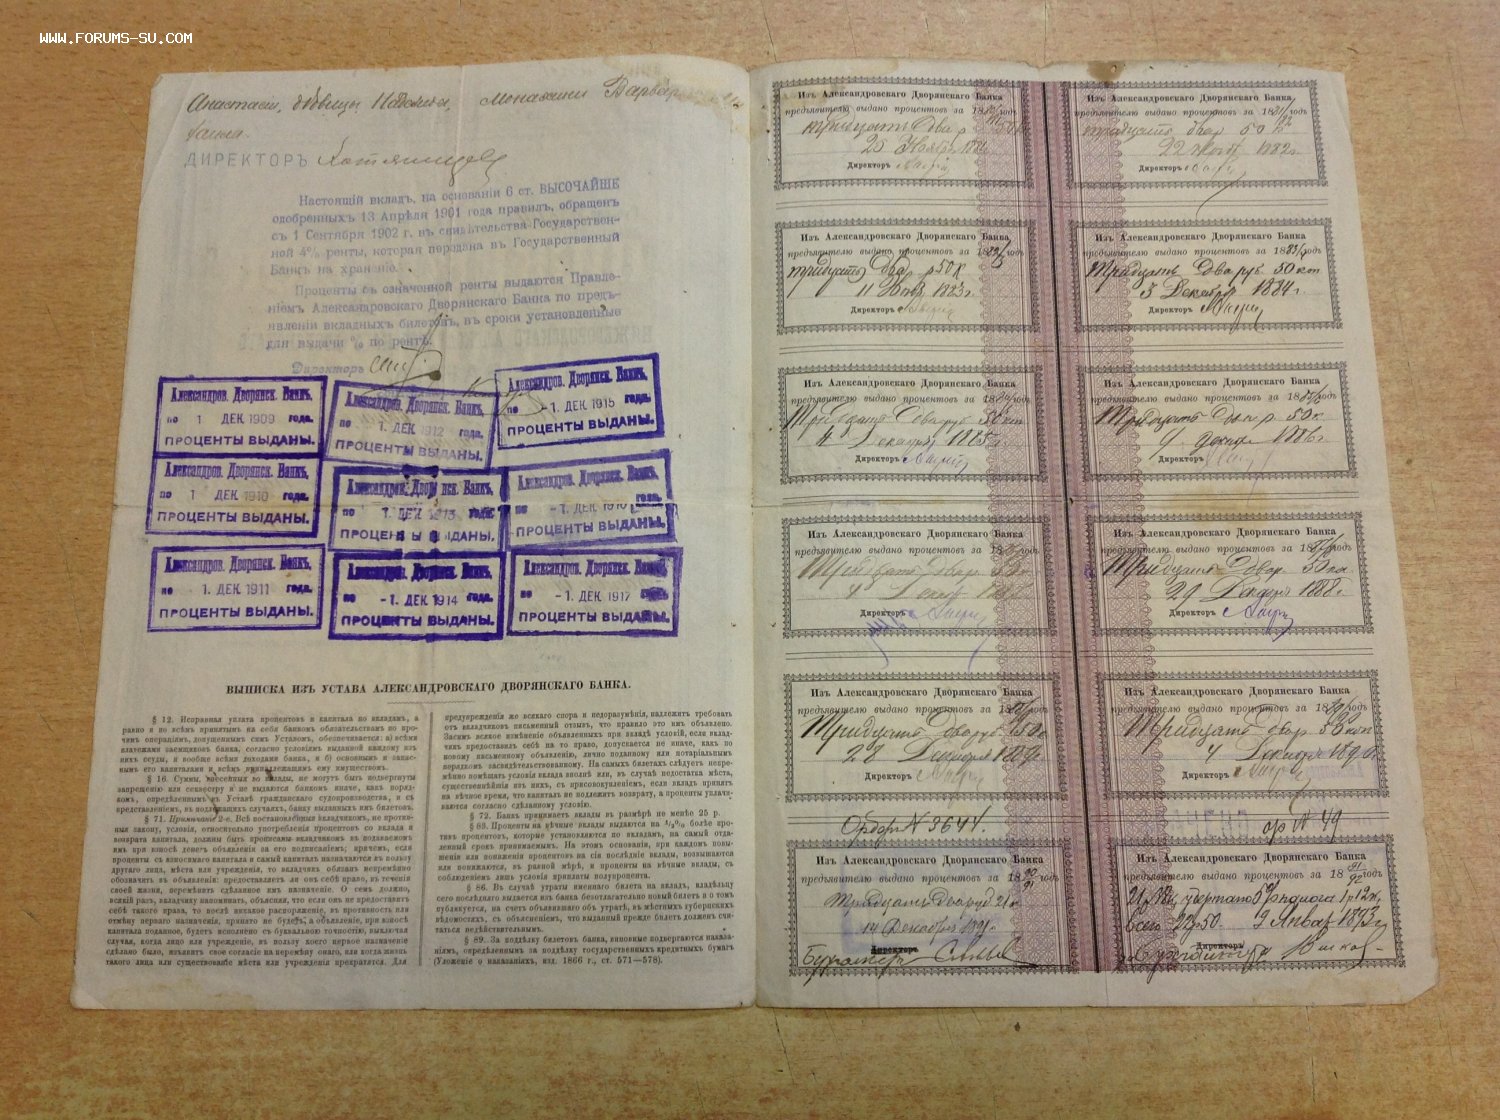 WWW.FORUMS-SU.COM
Монахини Варвар
ДИРЕКТОРЪ
Настоящій вкладъ, на основаніи 6 ст. ВЫСОЧАЙШЕ
одобренныхъ 13 Апрѣля 1901 года правилъ, обращенъ
съ 1 Сентября 1902 г. въ свидѣтельства Государствен-
ной 4% ренты, которая передана въ Государственный
Банкъ на храненіе.
Проценты съ означенной ренты выдаются Правле-
ніемъ Александровскаго Дворянскаго Банка по предъ-
явленіи вкладныхъ билетовъ, въ сроки установленные
для выдачи % по рентѣ.
Директоръ
Александров. Дворянск. Банкъ.
по 1 ДЕК 1909 года.
ПРОЦЕНТЫ ВЫДАНЫ.
Александров. Дворянск. Банкъ,
по 1. ДЕК. 1912 года.
ПРОЦЕНТЫ ВЫДАНЫ.
Александров. Дворянск. Банкъ,
по -1. ДЕК. 1915 года.
ПРОЦЕНТЫ ВЫДАНЫ.
Александров. Дворянск. Банкъ,
по 1 ДЕК 1910 года.
ПРОЦЕНТЫ ВЫДАНЫ.
Александров. Дворянск. Банкъ,
по 1. ДЕК. 1913 года.
ПРОЦЕНТЫ ВЫДАНЫ.
Александров. Дворянск. Банкъ,
по -1. ДЕК. года.
ПРОЦЕНТЫ ВЫДАНЫ.
Александров. Дворянск. Банкъ,
по 1. ДЕК. 1911 года.
ПРОЦЕНТЫ ВЫДАНЫ.
Александров. Дворянск. Банкъ,
по -1. ДЕК. 1914 года.
ПРОЦЕНТЫ ВЫДАНЫ.
Александров. Дворянск. Банкъ,
по -1. ДЕК. 1917 года.
ПРОЦЕНТЫ ВЫДАНЫ.
ВЫПИСКА ИЗЪ УСТАВА АЛЕКСАНДРОВСКАГО ДВОРЯНСКАГО БАНКА.
§ 12. Исправная уплата процентовъ и капитала по вкладамъ, а
равно и по всѣмъ принятымъ на себя банкомъ обязательствамъ по про-
чимъ операціямъ, дозволеннымъ симъ Уставомъ, обеспечивается: а) всѣми
платежами заемщиковъ банка, согласно условіямъ выданной каждому изъ
нихъ ссуды, и вообще всѣми доходами банка, и б) основнымъ и запас-
нымъ его капиталами и всѣмъ принадлежащимъ ему имуществомъ.
§ 16. Суммы, внесенныя во вклады, не могутъ быть подвергнуты
запрещенію или секвестру и не выдаются банкомъ иначе, какъ поряд-
комъ, опредѣленнымъ въ Уставѣ гражданскаго судопроизводства, и съ
представленіемъ, въ подлежащихъ случаяхъ, банку выданныхъ имъ билетовъ.
§ 71. Примѣчаніе 2-е. Всѣ постановленныя вкладчикомъ, не против-
ныя закону, условія, относительно употребленія процентовъ со вклада и
возврата капитала, должны быть прописаны вкладчикомъ въ подаваемомъ
имъ при взносѣ денегъ объявленіи за его подписаніемъ; причемъ, если
проценты съ взносимаго капитала и самый капиталъ назначаются въ пользу
другаго лица, мѣста или учрежденія, то вкладчикъ обязанъ непремѣнно
обозначить въ объявленіи: предоставляетъ ли онъ себѣ право, въ теченіи
своей жизни, перемѣнить сдѣланное имъ назначеніе. О семъ должно,
всякій разъ, вкладчику напоминать, объясняя, что если онъ не предоставитъ
себѣ такого права, то послѣ никакое распоряженіе, въ противность или
отмѣну перваго назначенія, принято не будетъ, а объявленіе, при взносѣ
капитала поданное, будетъ исполнено съ буквальною точностью, выключая
случая, когда лицо или учрежденіе, въ пользу коего первое назначеніе
сдѣлано было, изъявитъ свое согласіе на перемѣну онаго, или когда жизнь
такого лица или существованіе мѣста или учрежденія прекратятся. Для
предупрежденія же всякаго спора и недоразумѣнія, надлежитъ требовать
отъ вкладчиковъ письменный отзывъ, что правило это имъ объявлено.
Засимъ всякое измѣненіе объявленныхъ при вкладѣ условій, если вклад-
чикъ предоставилъ себѣ на то право, допускается не иначе, какъ по
новому письменному объявленію, лично поданному или нотаріальнымъ
порядкомъ засвидѣтельствованному. На самыхъ билетахъ слѣдуетъ непре-
мѣнно помѣщать условія вклада вполнѣ или, въ случаѣ недостатка мѣста,
существеннѣйшія изъ нихъ, съ присовокупленіемъ, если вкладъ принятъ
на вѣчное время, что капиталъ не подлежитъ возврату, а проценты уплачи-
ваются согласно сдѣланному условію.
§ 72. Банкъ принимаетъ вклады въ размѣрѣ не менѣе 25 р.
§ 83. Проценты на вѣчные вклады выдаются на ½% болѣе про-
тивъ процентовъ, которые установляются по вкладамъ, на самый отда-
ленный срокъ принимаемымъ. На этомъ основаніи, при каждомъ повы-
шеніи или пониженіи процентовъ на сіи послѣдніе вклады, возвышаются
или понижаются, въ равной мѣрѣ, и проценты на вѣчные вклады, съ
соблюденіемъ лишь условія приплаты полупроцента.
§ 86. Въ случаѣ утраты именнаго билета на вкладъ, владѣльцу
сего послѣдняго выдается изъ банка безотлагательно новый билетъ и о томъ
публикуется, на счетъ объявившаго объ утратѣ, въ мѣстныхъ губернскихъ
вѣдомостяхъ, съ объясненіемъ, что выданный прежде билетъ долженъ счи-
таться недѣйствительнымъ.
§ 89. За поддѣлку билетовъ банка, виновные подвергаются наказа-
ніямъ, опредѣленнымъ за поддѣлку государственныхъ кредитныхъ бумагъ
(Уложеніе о наказаніяхъ, изд. 1866 г., ст. 571—578).
Изъ Александровскаго Дворянскаго Банка
предъявителю выдано процентовъ за 18 годъ
Директоръ
Изъ Александровскаго Дворянскаго Банка
предъявителю выдано процентовъ за 1881/82 годъ
тридцать два р 50 к
1882 г.
Директоръ
Изъ Александровскаго Дворянскаго Банка
предъявителю выдано процентовъ за 1882/3 годъ
тридцать два р 50 к
1883 г.
Директоръ
Изъ Александровскаго Дворянскаго Банка
предъявителю выдано процентовъ за 1883/4 годъ
Тридцать два руб 50 коп
3 Декабря 1884 г.
Директоръ
Изъ Александровскаго Дворянскаго Банка
предъявителю выдано процентовъ за 18 годъ
Тридцать два руб 50 коп
4 Декабря 1885 г
Директоръ
Изъ Александровскаго Дворянскаго Банка
предъявителю выдано процентовъ за 18 годъ
Тридцать два р. 50 к.
Декабр 1886 г
Директоръ
Изъ Александровскаго Дворянскаго Банка
предъявителю выдано процентовъ за 18 годъ
Директоръ
Изъ Александровскаго Дворянскаго Банка
предъявителю выдано процентовъ за 18 годъ
Тридцать два р. 50 коп
29 Декабря 1888 г.
Директоръ
Изъ Александровскаго Дворянскаго Банка
предъявителю выдано процентовъ за 18 годъ
Тридцать два руб 50
28 Декабря 1889
Директоръ
Изъ Александровскаго Дворянскаго Банка
предъявителю выдано процентовъ за 18 годъ
Тридцать два р. 50 коп
4 Декабря 1890 г
Директоръ
Ордеръ № 3644.
ор № 49
Изъ Александровскаго Дворянскаго Банка
предъявителю выдано процентовъ за 18 90/91 годъ
Тридцать два руб
14 Декабря 1891 г.
Директоръ
Бухгалтеръ
Изъ Александровскаго Дворянскаго Банка
предъявителю выдано процентовъ за 18 91/92 годъ
9 Январ
Директоръ